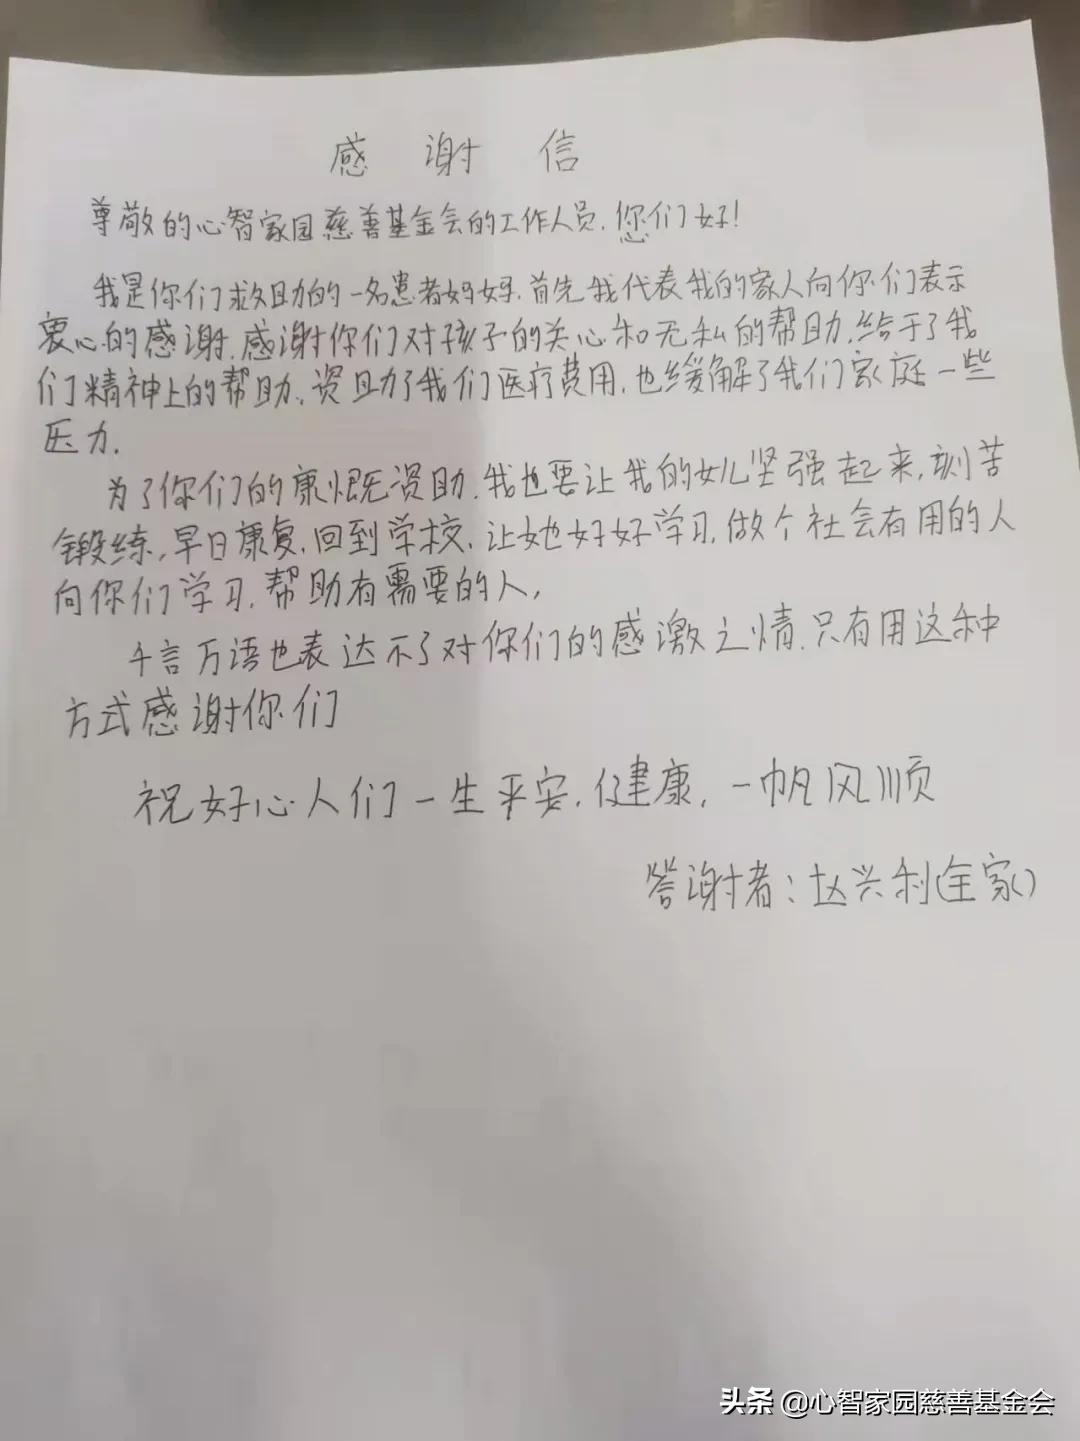 感谢信
尊敬的心智家园慈善基金会的工作人员.您们好!
我是你们救助的一名患者妈妈.首先我代表我的家人向你们表示
衷心的感谢.感谢你们对孩子的关心和无私的帮助.给于了我
们精神上的帮助.资助了我们医疗费用.也缓解了我们家庭一些
压力.
为了你们的康慨资助.我也要让我的女儿坚强起来,刻苦
锻练,早日康复.回到学校.让她好好学习.做个社会有用的人
向你们学习.帮助有需要的人,
千言万语也表达不了对你们的感激之情.只有用这种
方式感谢你们
祝好心人们一生平安.健康,一帆风顺
答谢者:赵兴利(全家)
头条 @心智家园慈善基金会